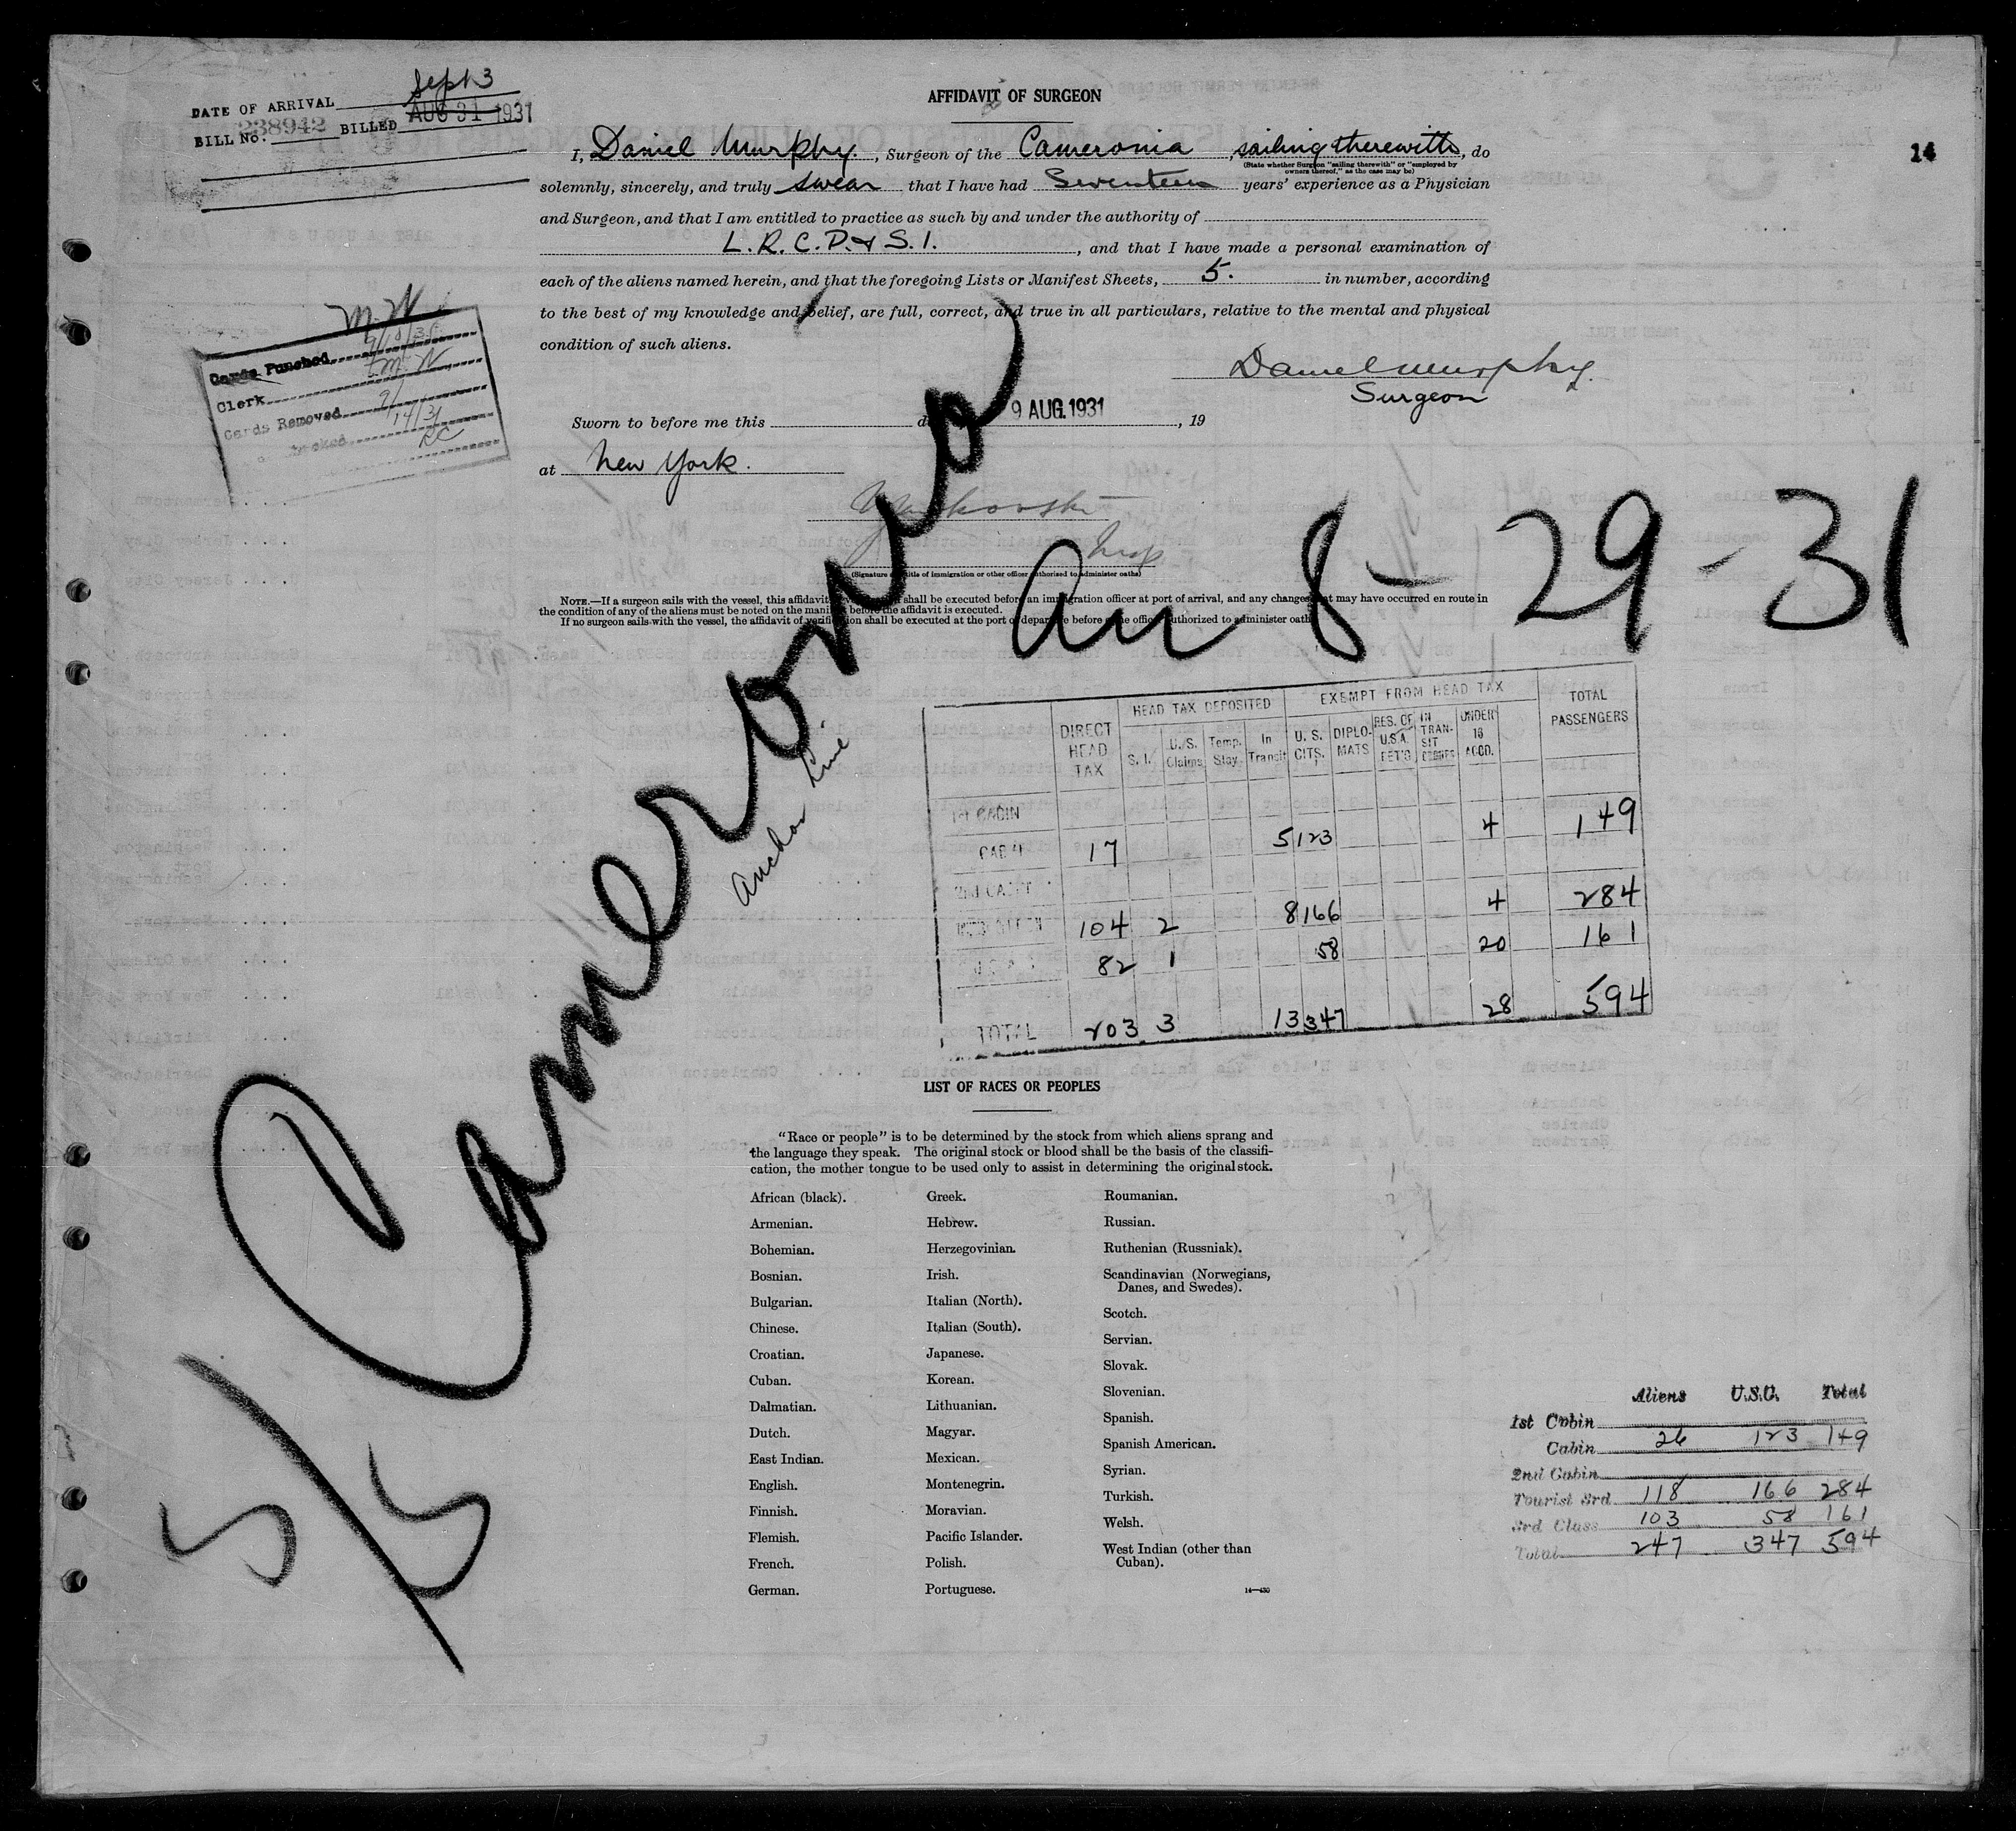 Sept 3
DATE OF ARRIVAL AUG 31 1931
BILL No. 238942 BILLED
14
AFFIDAVIT OF SURGEON
I, Daniel Murphy, Surgeon of the Cameronia, sailing therewith, do
(State whether Surgeon "sailing therewith" or "employed by
owners thereof," as the case may be)
solemnly, sincerely, and truly swear that I have had Seventeen years' experience as a Physician
and Surgeon, and that I am entitled to practice as such by and under the authority of
L. R. C. P. & S. I., and that I have made a personal examination of
each of the aliens named herein, and that the foregoing Lists or Manifest Sheets, 5. in number, according
to the best of my knowledge and belief, are full, correct, and true in all particulars, relative to the mental and physical
condition of such aliens.
Daniel Murphy.
Surgeon
M. N.
Cards Punched
Clerk M. N.
Cards Removed 9/14/31
RC
Sworn to before me this 9 AUG. 1931, 19
at New York.
Insp
(Signature title of immigration or other officer authorized to administer oaths)
NOTE.—If a surgeon sails with the vessel, this affidavit shall be executed before an immigration officer at port of arrival, and any changes that may have occurred en route in
the condition of any of the aliens must be noted on the manifest before the affidavit is executed.
If no surgeon sails with the vessel, the affidavit of verification shall be executed at the port of departure before some officer authorized to administer oaths
S/S Cameronia
Anchor Line
Arr 8-29-31
HEAD TAX DEPOSITED EXEMPT FROM HEAD TAX
DIRECT HEAD TAX S. I. U.S. Claims Temp. Stay In Transit U. S. CITS. DIPLOMATS RES. OF U.S.A. RET'G IN TRANSIT UNDER 16 ACCD. TOTAL PASSENGERS
1st CABIN
CABIN 17 5 123 4 149
2nd CABIN
104 2 8 166 4 284
82 1 58 20 161
TOTAL 203 3 13 347 28 594
LIST OF RACES OR PEOPLES
"Race or people" is to be determined by the stock from which aliens sprang and
the language they speak. The original stock or blood shall be the basis of the classifi-
cation, the mother tongue to be used only to assist in determining the original stock.
African (black).
Armenian.
Bohemian.
Bosnian.
Bulgarian.
Chinese.
Croatian.
Cuban.
Dalmatian.
Dutch.
East Indian.
English.
Finnish.
Flemish.
French.
German.
Greek.
Hebrew.
Herzegovinian.
Irish.
Italian (North).
Italian (South).
Japanese.
Korean.
Lithuanian.
Magyar.
Mexican.
Montenegrin.
Moravian.
Pacific Islander.
Polish.
Portuguese.
Roumanian.
Russian.
Ruthenian (Russniak).
Scandinavian (Norwegians,
Danes, and Swedes).
Scotch.
Servian.
Slovak.
Slovenian.
Spanish.
Spanish American.
Syrian.
Turkish.
Welsh.
West Indian (other than
Cuban).
14—430
Aliens U.S.C. Total
1st Cabin
Cabin 26 123 149
2nd Cabin
Tourist 3rd 118 166 284
3rd Class 103 58 161
Total 247 347 594